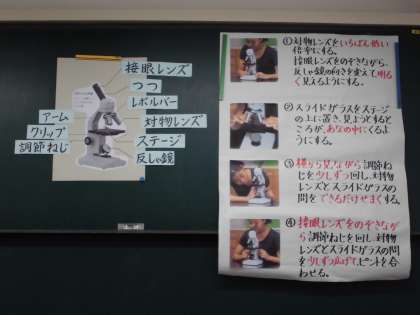 接眼レンズ
つつ
レボルバー
アーム
対物レンズ
クリップ
ステージ
調節ねじ
反しゃ鏡
①対物レンズをいちばん低い
倍率にする。
接眼レンズをのぞきながら、
反しゃ鏡の向きを変えて、明る
く見えるようにする。
②スライドガラスをステージ
の上に置き、見ようとすると
ころが、あなの中にくるよ
うにする。
③横から見ながら調節ね
じを少しずつ回し、対物
レンズとスライドガラスの
間をできるだけせまくする。
④接眼レンズをのぞきなが
ら調節ねじを回し、対物
レンズとスライドガラスの間
を少しずつ広げて、ピントを合
わせる。